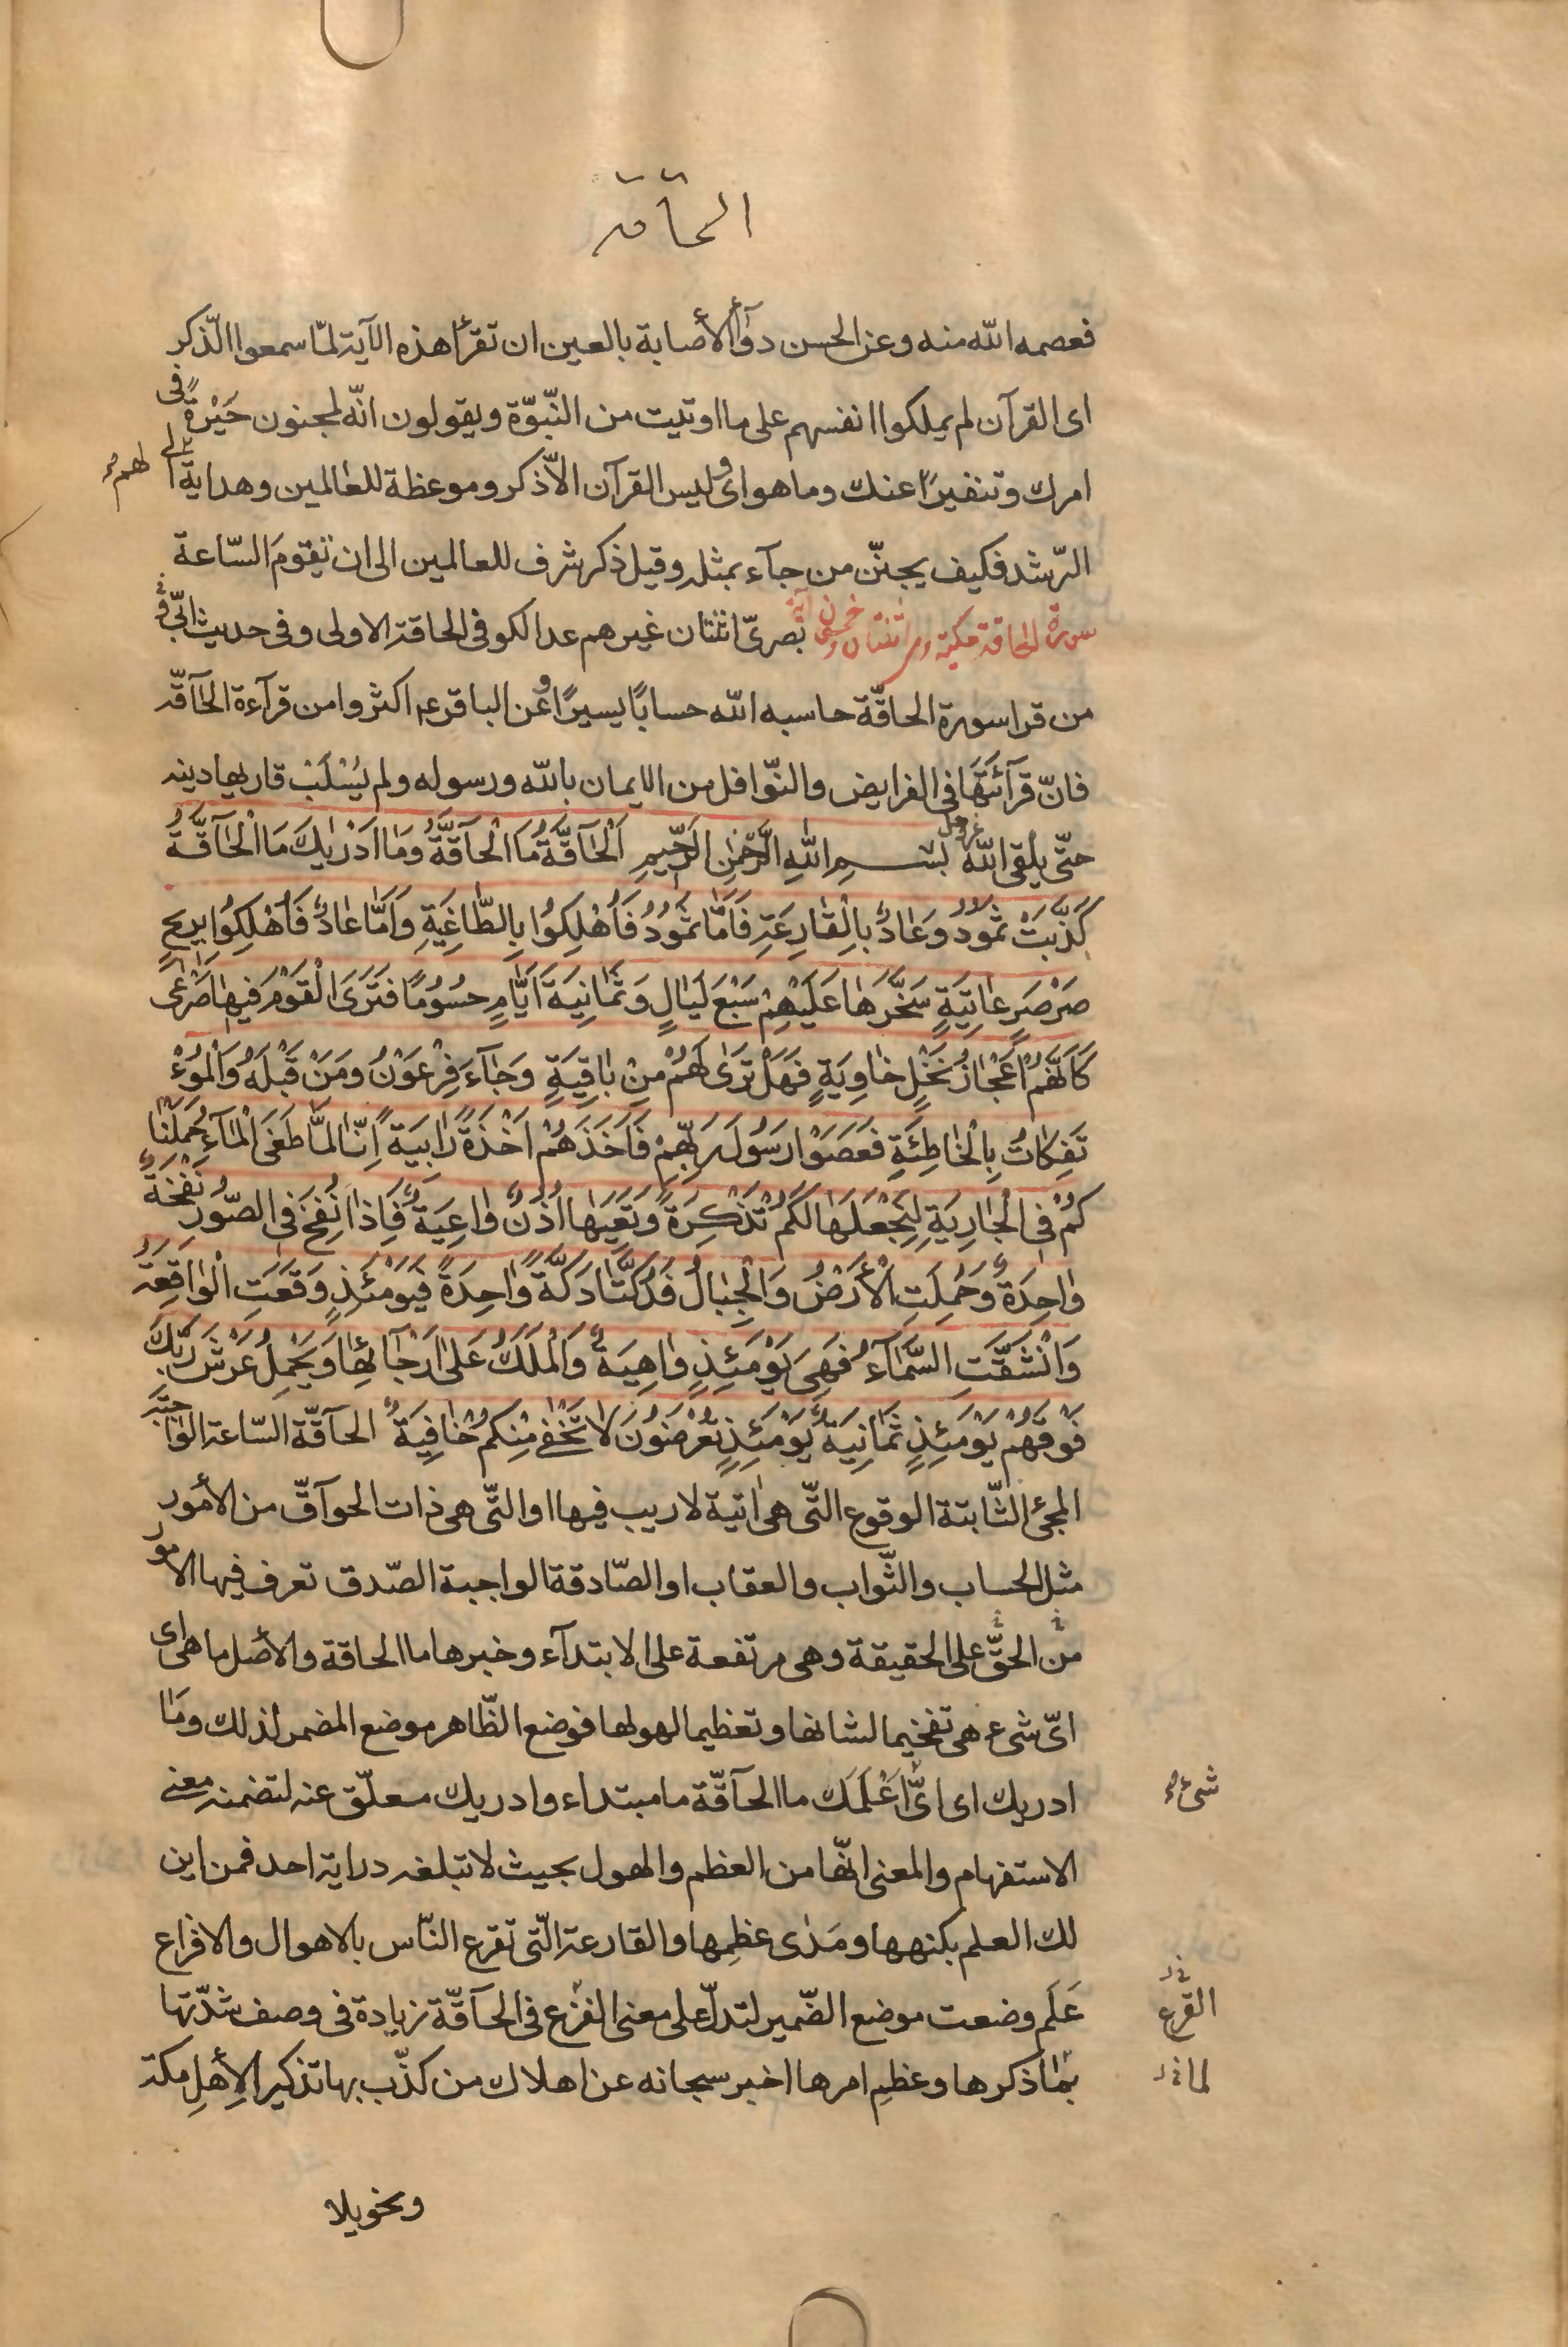 الحاقة
فعصمه الله منه وعن الحسن دوآء الأصابة بالعين ان تقرأ هذه الآية لمّا سمعوا الذّكر
اى القرآن لم يملكوا انفسهم على ما اوتيت من النّبوّة ويقولون انّه لمجنون حَيْرةً فى
امرك وتنفيرًا عنك وما هو اى وليس القرآن الّا ذكر وموعظة للعالمين وهداية لهم الى
الرّشد فكيف يجنّن من جآء بمثله وقيل ذكر شرف للعالمين الى ان تقومَ السّاعة
سورة الحاقة مكية وهى اثنتان وخمسون آية بصرىّ اثنتان غيرهم عد الكوفى الحاقة الاولى وفى حديث ابىّ
من قرا سورة الحاقّة حاسبه الله حسابًا يسيرًا وعن الباقر ع اكثروا من قرآءة الحآقّة
فانّ قرآئتَهَا فى الفرايض والنّوافل من الايمان بالله ورسوله ولم يُسْلَبْ قاريها دينه
حتّى يلقى الله عز وجل بسم اللهِ الرَّحْمٰنِ الرَّحِيمِ اَلْحَآقَّةُ مَا الْحَآقَّةُ وَمَا اَدْرٰيكَ مَا الْحَآقَّةُ
كَذَّبَتْ ثَمُودُ وَعَادٌ بِالْقَارِعَةِ فَاَمَّا ثَمُودُ فَاُهْلِكُوا بِالطَّاغِيَةِ وَاَمَّا عَادٌ فَاُهْلِكُوا بِرِيحٍ
صَرْصَرٍ عَاتِيَةٍ سَخَّرَهَا عَلَيْهِمْ سَبْعَ لَيَالٍ وَثَمَانِيَةَ اَيَّامٍ حُسُومًا فَتَرَى الْقَوْمَ فِيهَا صَرْعَى
كَاَنَّهُمْ اَعْجَازُ نَخْلٍ خَاوِيَةٍ فَهَلْ تَرَى لَهُمْ مِنْ بَاقِيَةٍ وَجَآءَ فِرْعَوْنُ وَمَنْ قَبْلَهُ وَالْمُؤْ
تَفِكَاتُ بِالْخَاطِئَةِ فَعَصَوْا رَسُولَ رَبِّهِمْ فَاَخَذَهُمْ اَخْذَةً رَابِيَةً اِنَّا لَمَّا طَغَى الْمَآءُ حَمَلْنَا
كُمْ فِى الْجَارِيَةِ لِنَجْعَلَهَا لَكُمْ تَذْكِرَةً وَتَعِيَهَا اُذُنٌ وَاعِيَةٌ فَاِذَا نُفِخَ فِى الصُّورِ نَفْخَةٌ
وَاحِدَةٌ وَحُمِلَتِ الْأَرْضُ وَالْجِبَالُ فَدُكَّتَا دَكَّةً وَاحِدَةً فَيَوْمَئِذٍ وَقَعَتِ الْوَاقِعَةُ
وَانْشَقَّتِ السَّمَآءُ فَهِىَ يَوْمَئِذٍ وَاهِيَةٌ وَالْمَلَكُ عَلَى اَرْجَآئِهَا وَيَحْمِلُ عَرْشَ رَبِّكَ
فَوْقَهُمْ يَوْمَئِذٍ ثَمَانِيَةٌ يَوْمَئِذٍ تُعْرَضُونَ لَا تَخْفَى مِنْكُمْ خَافِيَةٌ الحآقّة السّاعة الواجبة
المجئ الثّابتة الوقوع الّتى هى اتية لا ريب فيها او الّتى هى ذات الحوآقّ من الأمور
مثل الحساب والثّواب والعقاب او الصّادقة الواجبة الصّدق تعرف فيها الامور
من الحقّ على الحقيقة وهى مرتفعة على الابتدآء وخبرها ما الحاقة والأصل ما هى اى
اىّ شىء هى تفخيما لشانها وتعظيما لهولها فوضع الظّاهر موضع المضمر لذلك وما
ادريك اى اىّ اَعْلَمَكَ ما الحآقّة ما مبتداء وادريك معلّق عنه لتضمنه معنى
شىء
الاستفهام والمعنى انّها من العظم والهول بحيث لا تبلغه دراية احد فمن اين
لك العلم بكنهها ومَدٰى عظِمها والقارعة الّتى تقرع النّاس بالاهوال والافزاع
عَلَم وضعت موضع الضّمير لتدلّ على معنى الفزع فى الحآقّة زيادة فى وصف شدّتها
القرع
بما ذكرها وعظم امرها اخبر سبحانه عن اهلاك من كذّب بها تذكيرا لأِهلِ مكة
لما
وتخويلا